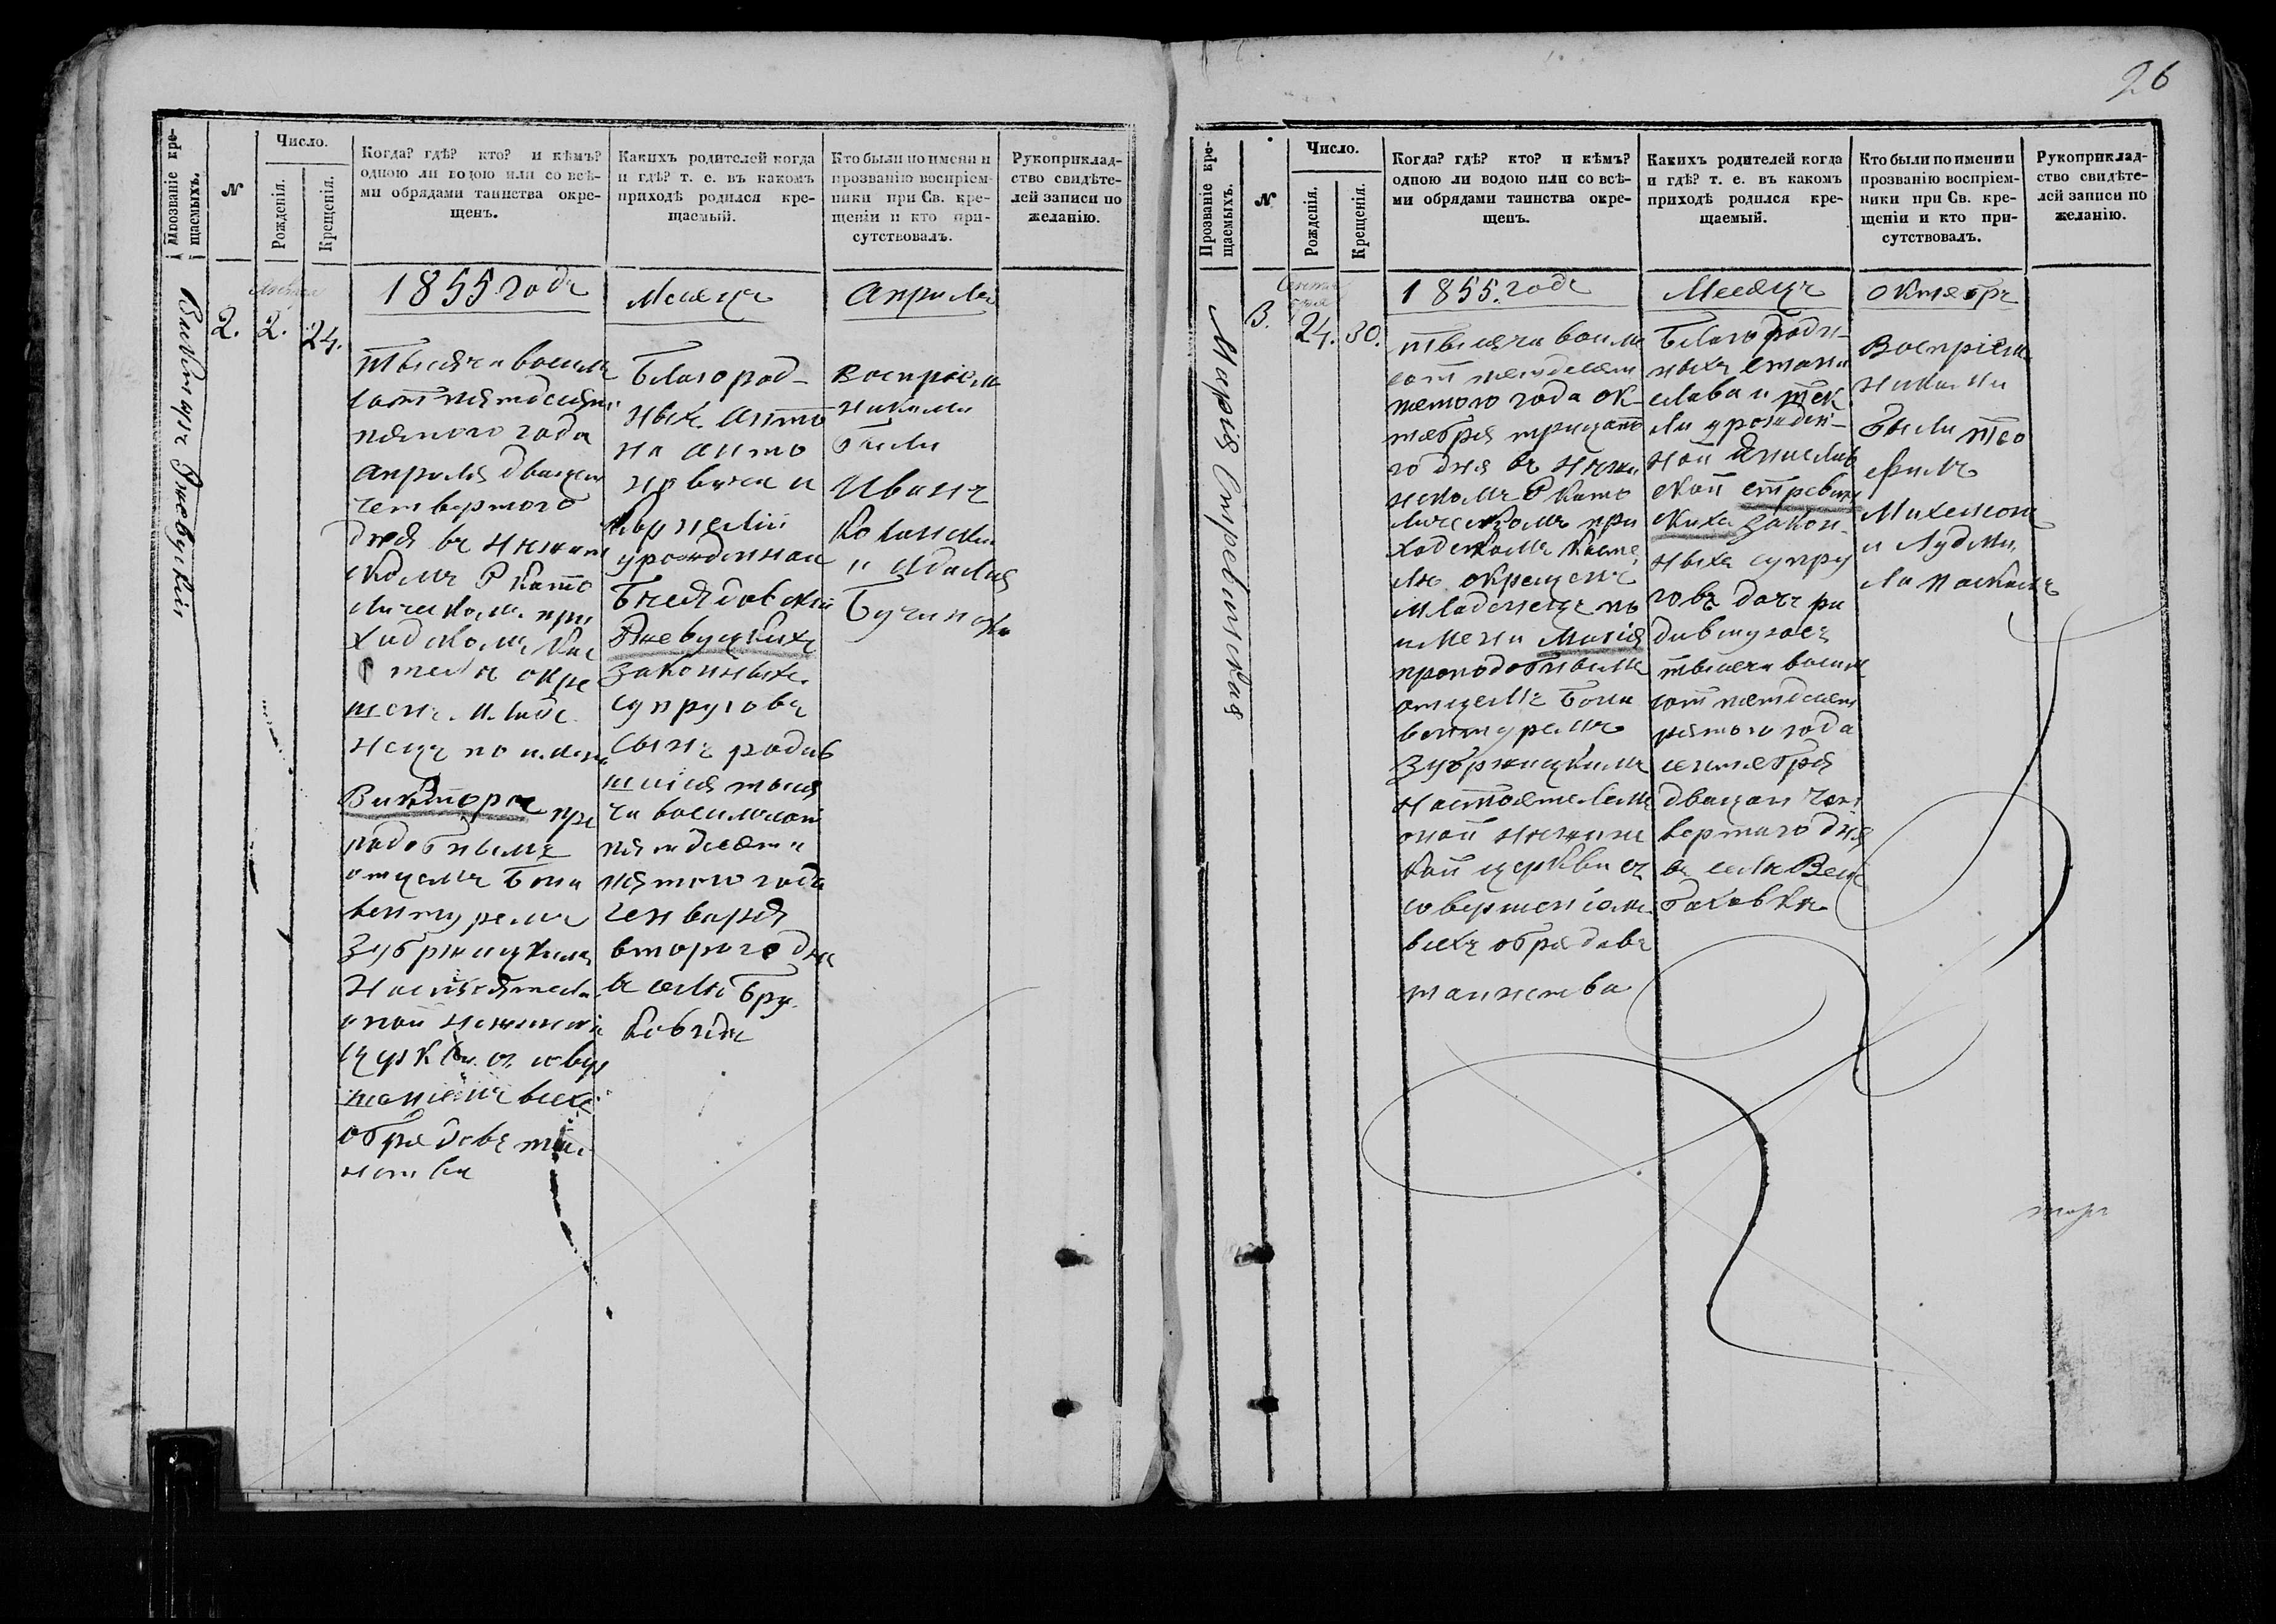 26
Прозваніе кре-
щаемыхъ.
№
Число.
Рожденія.
Крещенія.
Когда? гдѣ? кто? и кѣмъ?
одною ли водою или со всѣ-
ми обрядами таинства окре-
щенъ.
Какихъ родителей когда
и гдѣ? т. е. въ какомъ
приходѣ родился кре-
щаемый.
Кто были по имени и
прозванію воспріем-
ники при Св. кре-
щеніи и кто при-
сутствовалъ.
Рукоприклад-
ство свидѣте-
лей записи по
желанію.
Викторъ Ржевускій
2.
2.
24.
1855 годъ
Тысяча восем
сот пятдесят
пятого года
апреля двадцат
четвертого
дня въ Нежин
скомъ Р Като
лическом при
ходском Кос
теле окре
щенъ младе
нецъ по имени
Викторъ пре
подобнымъ
отцемъ Бона
вентуремъ
Зубржицкимъ
Настоятелем
оной Нежинской
церкви съ совер
шеніемъ всехъ
обрядовъ таи
нства
Месяцъ
Благород-
ныхъ Анто
на Анто
новича и
Корнелій
урожденной
Бнедовской
Ржевускихъ
законныхъ
супруговъ
сынъ родив
шійся тыся
ча восемсот
пятдесят
пятого года
генваря
второго дня
в селе Бру
Апрель
Воспріем
никами
были
Иванъ
и
1855. годъ
Прозваніе кре-
щаемыхъ.
№
Число.
Рожденія.
Крещенія.
Когда? гдѣ? кто? и кѣмъ?
одною ли водою или со всѣ-
ми обрядами таинства окре-
щенъ.
Какихъ родителей когда
и гдѣ? т. е. въ какомъ
приходѣ родился кре-
щаемый.
Кто были по имени и
прозванію воспріем-
ники при Св. кре-
щеніи и кто при-
сутствовалъ.
Рукоприклад-
ство свидѣте-
лей записи по
желанію.
Марія
3.
24.
30.
тысяча восем
сот пятдесят
пятого года ок-
тября тридцато
го дня въ Нежи
нскомъ Р Като
лическомъ при
ходскомъ Косте
ле окрещенъ
младенецъ по
имени Марія
преподобнымъ
отцемъ Бона
вентуремъ
Зубржицкимъ
Настоятелемъ
оной Нежинс
кой церкви съ
совершеніем
всехъ обрядовъ
таинства
Месяцъ
Благород-
ныхъ Стани
слава и Тек
ли урожден-
ной
закон-
ныхъ супру
говъ дочь ро
дившуюсь
тысяча восем
сот пятдесят
пятого года
сентября
двадцать чет
вертого дня
въ селе
Октябрь
Воспріем
никами
были Тео
филъ
Михельсон
и Людми
ла